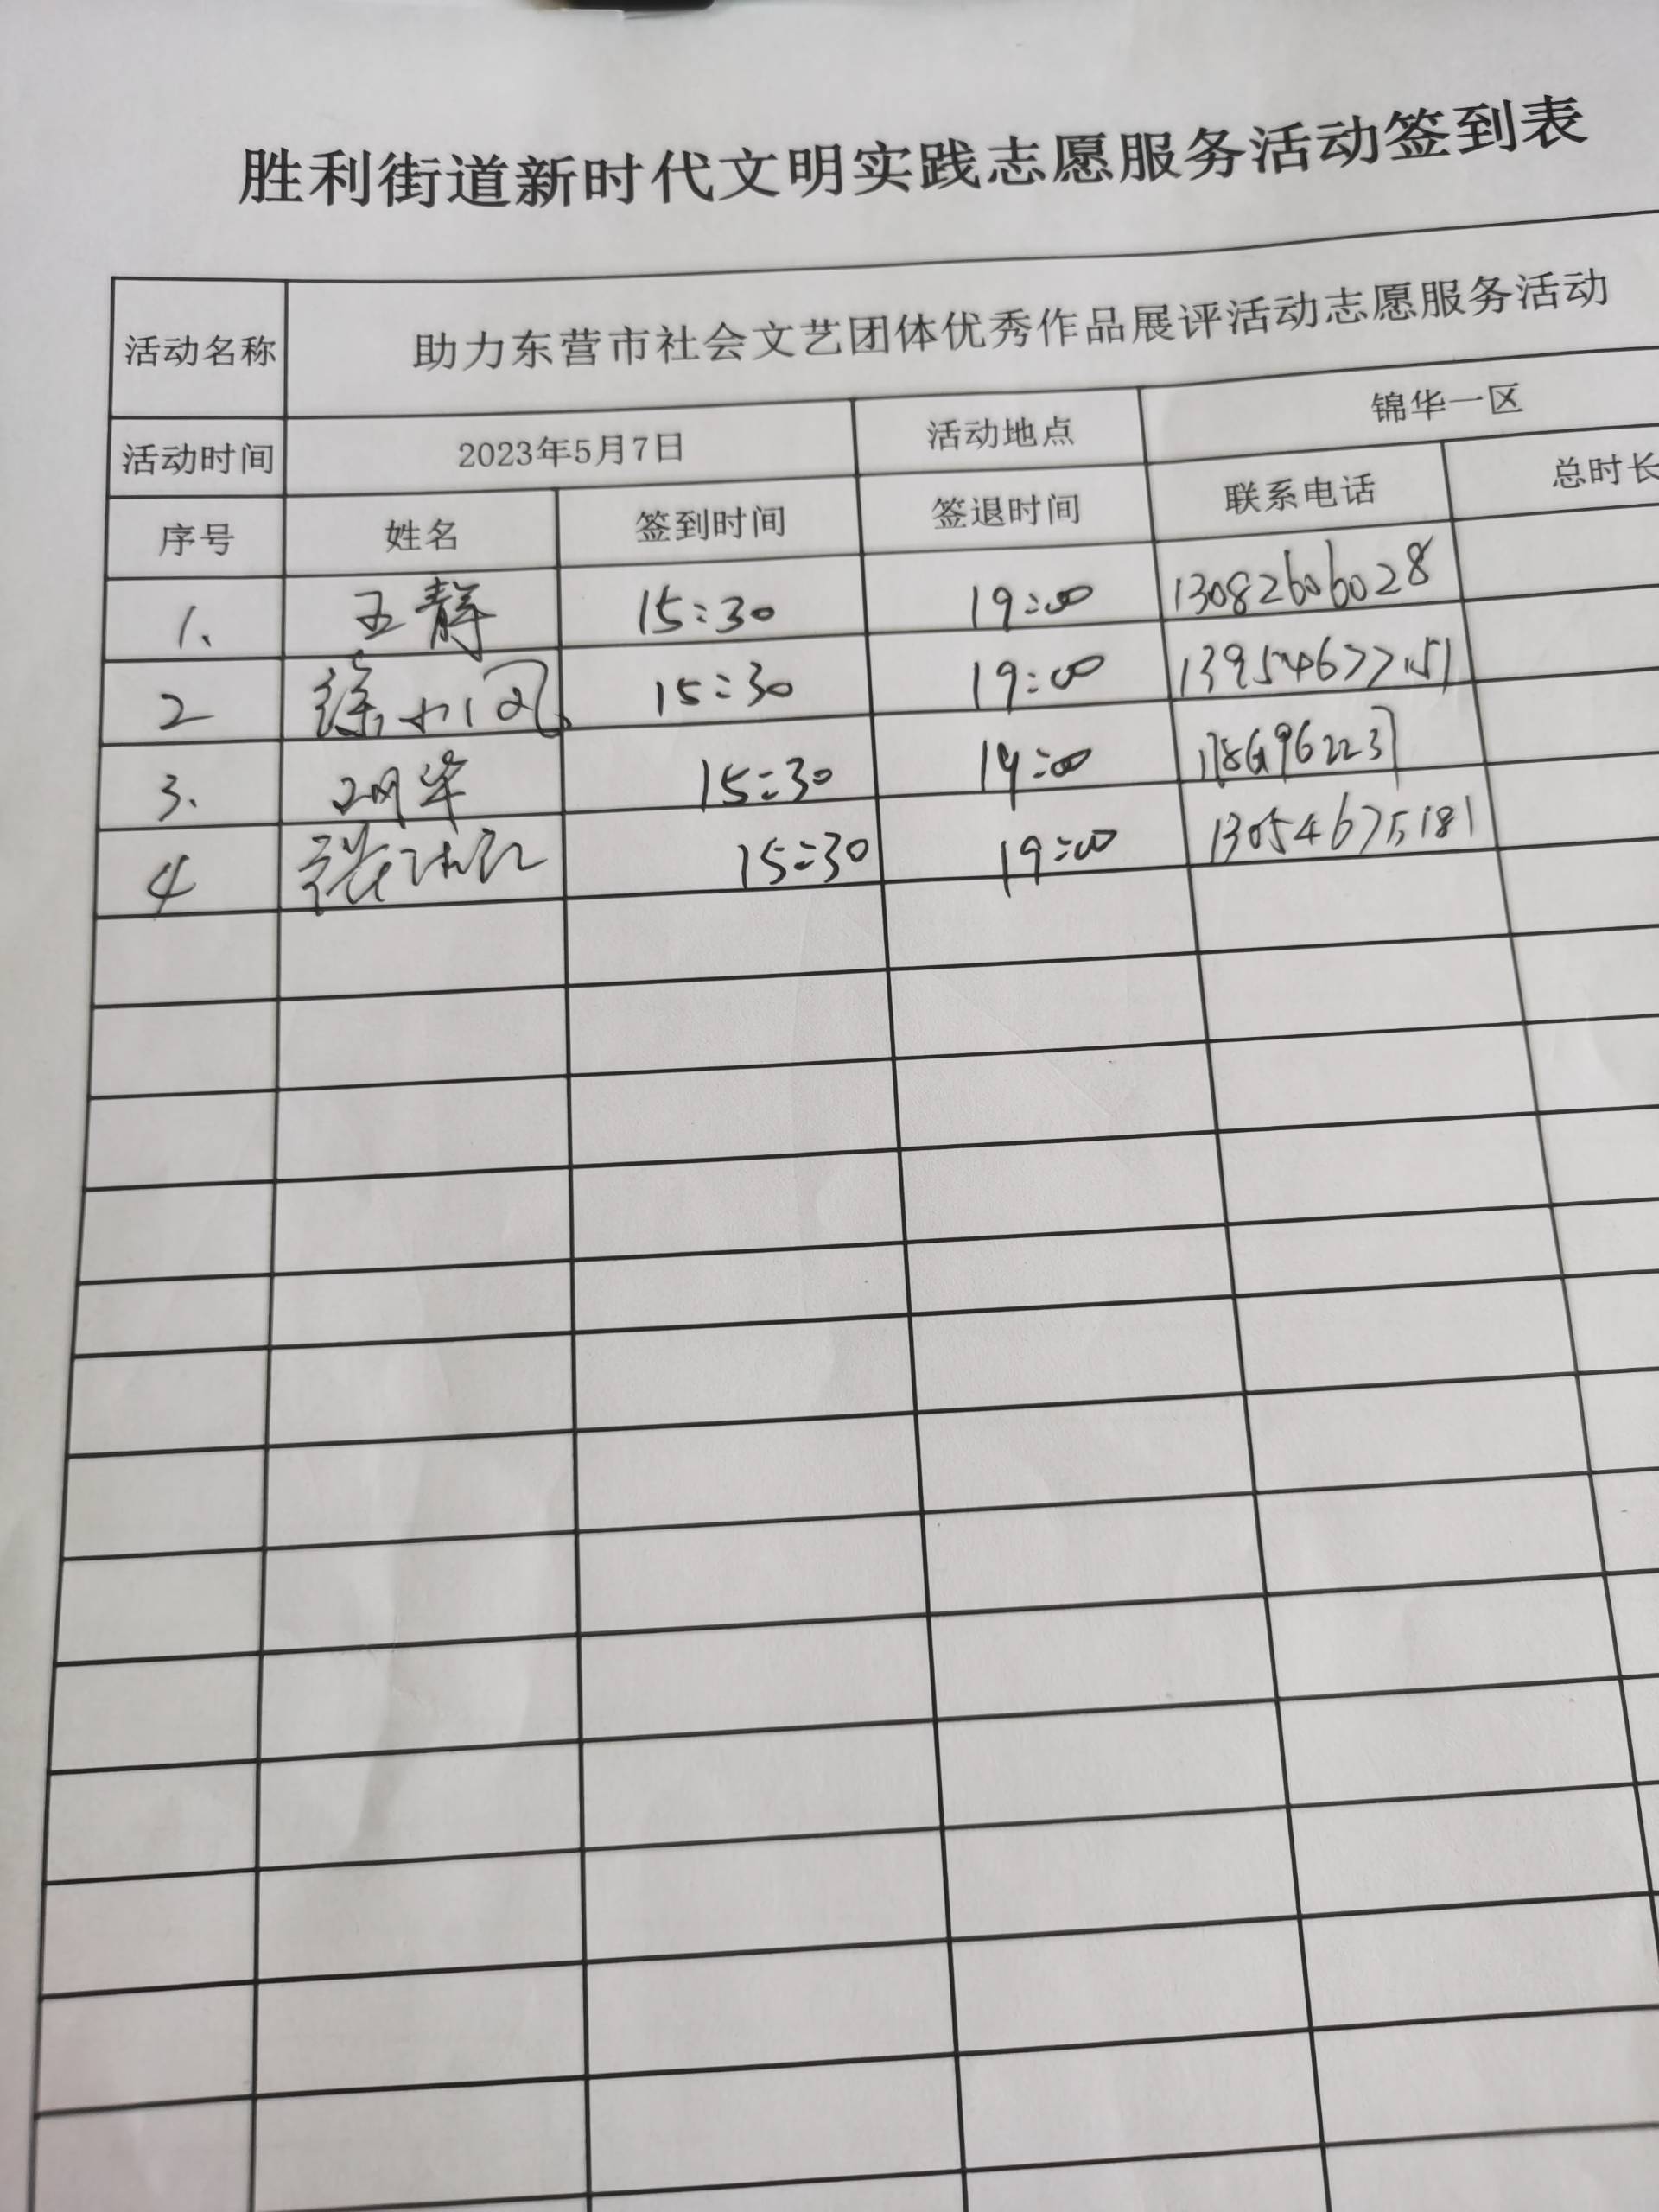 胜利街道新时代文明实践志愿服务活动签到表
活动名称 助力东营市社会文艺团体优秀作品展评活动志愿服务活动
活动时间 2023年5月7日 活动地点 锦华一区
序号 姓名 签到时间 签退时间 联系电话 总时长
1、 王静 15:30 19:00 13082606028
2 徐 15:30 19:00 13954677151
3、 15:30 19:00
4 张 15:30 19:00 13054675181